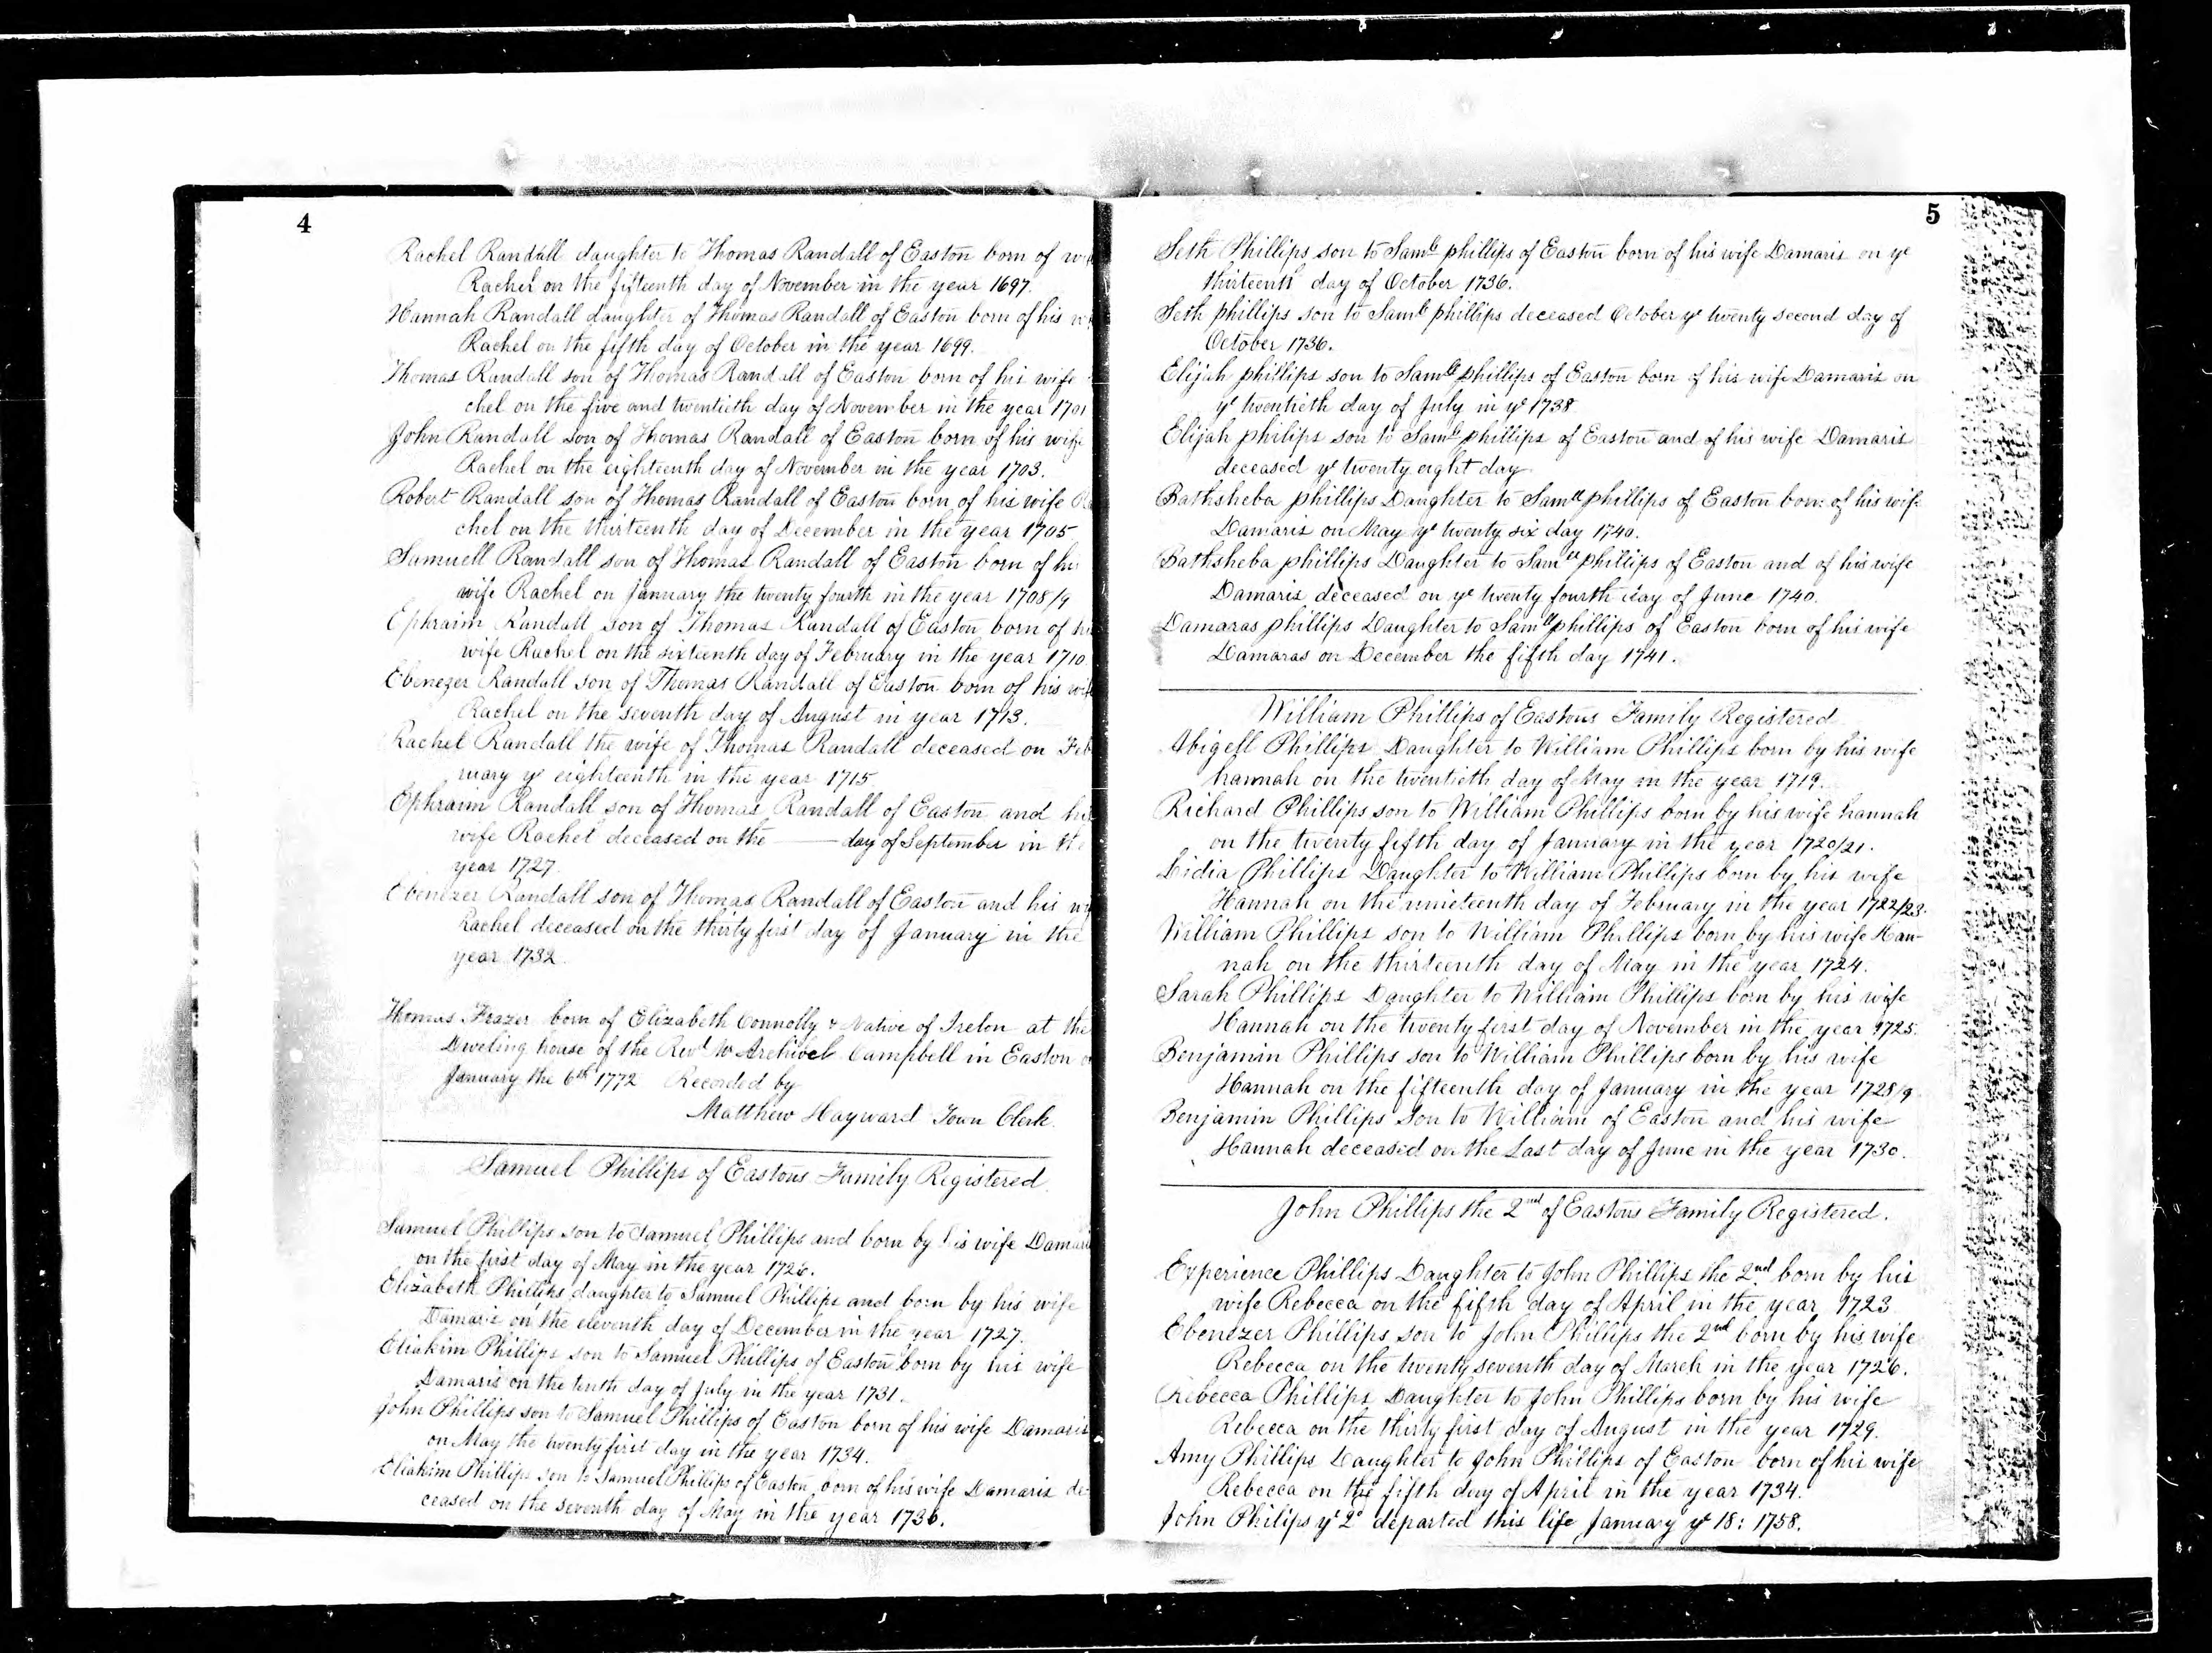 4
Rachel Randall daughter to Thomas Randall of Easton born of
Rachel on the fifteenth day of November in the year 1697.
Hannah Randall daughter of Thomas Randall of Easton born of his
Rachel on the fifth day of October in the year 1699.
Thomas Randall son of Thomas Randall of Easton born of his wife
chel on the five and twentieth day of November in the year 1701
John Randall son of Thomas Randall of Easton born of his wife
Rachel on the eighteenth day of November in the year 1703.
Robert Randall son of Thomas Randall of Easton born of his wife Ra
chel on the thirteenth day of December in the year 1705
Samuell Randall son of Thomas Randall of Easton born of his
wife Rachel on January the twenty fourth in the year 1708/9
Ephraim Randall son of Thomas Randall of Easton born of his
wife Rachel on the sixteenth day of February in the year 1710.
Ebenezer Randall son of Thomas Randall of Easton born of his wife
Rachel on the seventh day of August in year 1713.
Rachel Randall the wife of Thomas Randall deceased on Feb
ruary ye eighteenth in the year 1715
Ephraim Randall son of Thomas Randall of Easton and his
wife Rachel deceased on the —— day of September in the
year 1727.
Ebenezer Randall son of Thomas Randall of Easton and his wi
Rachel deceased on the thirty first day of January in the
year 1732.
Thomas Frazer born of Elizabeth Connolly & Native of Irelon at the
Dweling house of the Revd Archibel Campbell in Easton
January the 6th 1772 Recorded by
Matthew Hayward Town Clerk.
Samuel Phillips of Eastons Family Registered.
Samuel Phillips son to Samuel Phillips and born by his wife Damaris
on the first day of May in the year 1726.
Elizabeth Phillips daughter to Samuel Phillips and born by his wife
Damaris on the eleventh day of December in the year 1727.
Eliakim Phillips son to Samuel Phillips of Easton born by his wife
Damaris on the tenth day of July in the year 1731.
John Phillips son to Samuel Phillips of Easton born of his wife Damaris
on May the twenty first day in the year 1734.
Eliakim Phillips son to Samuel Phillips of Easton born of his wife Damaris de
ceased on the seventh day of May in the year 1736.
5
Seth Phillips son to Samll phillips of Easton born of his wife Damaris on ye
thirteenth day of October 1736.
Seth phillips son to Samll phillips deceased October ye twenty second day of
October 1736.
Elijah phillips son to Samll phillips of Easton born of his wife Damaris on
ye twentieth day of July in ye 1738
Elijah philips son to Samll phillips of Easton and of his wife Damaris
deceased ye twenty eight day
Bathsheba phillips Daughter to Samll phillips of Easton born of his wife
Damaris on May ye twenty six day 1740.
Bathsheba phillips Daughter to Samll phillips of Easton and of his wife
Damaris deceased on ye twenty fourth day of June 1740.
Damaras phillips Daughter to Samll phillips of Easton born of his wife
Damaras on December the fifth day 1741.
William Phillips of Eastons Family Registered
Abigell Phillips Daughter to William Phillips born by his wife
hannah on the twentieth day of May in the year 1719.
Richard Phillips son to William Phillips born by his wife hannah
on the twenty fifth day of January in the year 1720/21.
Lidia Phillips Daughter to William Phillips born by his wife
Hannah on the nineteenth day of February in the year 1722/23.
William Phillips son to William Phillips born by his wife Han-
nah on the thirteenth day of May in the year 1724.
Sarah Phillips Daughter to William Phillips born by his wife
Hannah on the twenty first day of November in the year 1725.
Benjamin Phillips son to William Phillips born by his wife
Hannah on the fifteenth day of January in the year 1728/9
Benjamin Phillips Son to William of Easton and his wife
Hannah deceased on the Last day of June in the year 1730.
John Phillips the 2nd of Eastons Family Registered.
Experience Phillips Daughter to John Phillips the 2nd born by his
wife Rebecca on the fifth day of April in the year 1723
Ebenezer Phillips son to John Phillips the 2nd born by his wife
Rebecca on the twenty seventh day of March in the year 1726.
Rebecca Phillips Daughter to John Phillips born by his wife
Rebecca on the thirty first day of August in the year 1729.
Amy Phillips Daughter to John Phillips of Easton born of his wife
Rebecca on the fifth day of April in the year 1734.
John Philips ye 2d departed this life January ye 18: 1758.